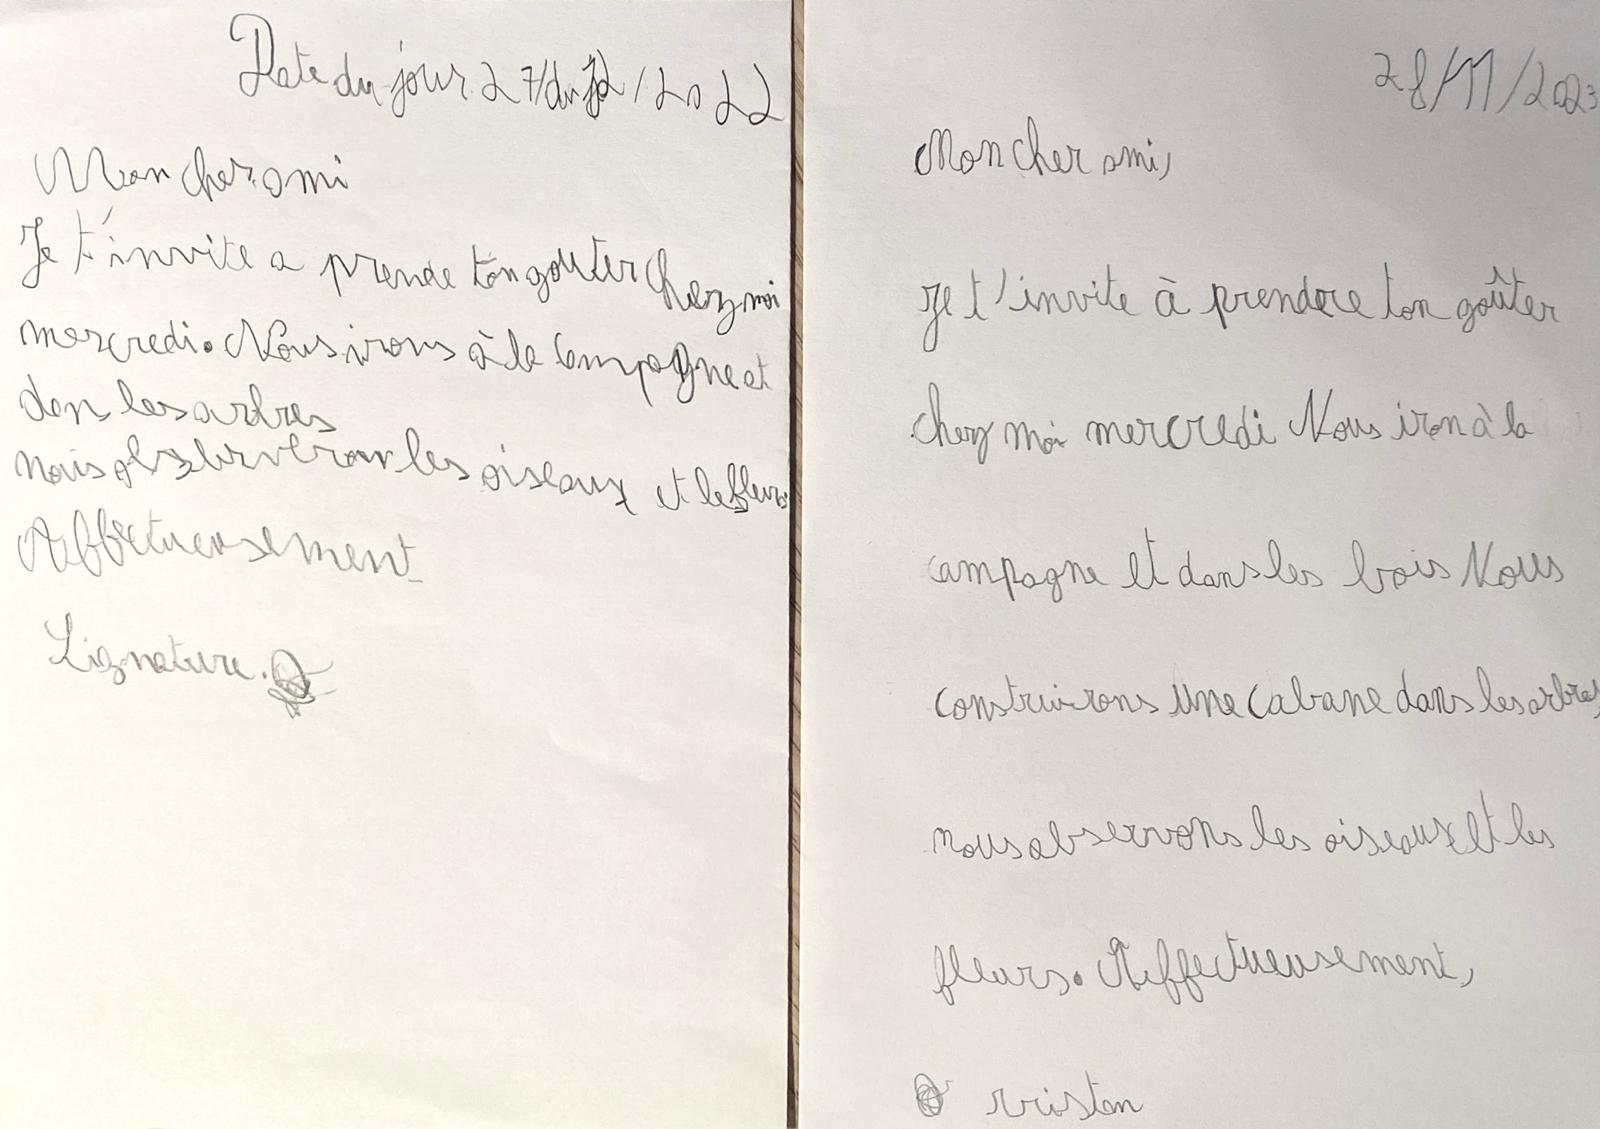 Date du jour 27/du 12/2022
Mon cher ami
Je t'invite a prende ton gouter chez moi
mercredi. Nous irons à la campagne et
dans les arbres
nous les oiseaux et les fleurs
Affectueusement
Signature.
28/11/2023
Mon cher ami,
Je t'invite à prendre ton goûter
chez moi mercredi Nous iron à la
campagne et dans les bois Nous
construirons une cabane dans les arbres,
nous observons les oiseaux et les
fleurs. Affectueusement,